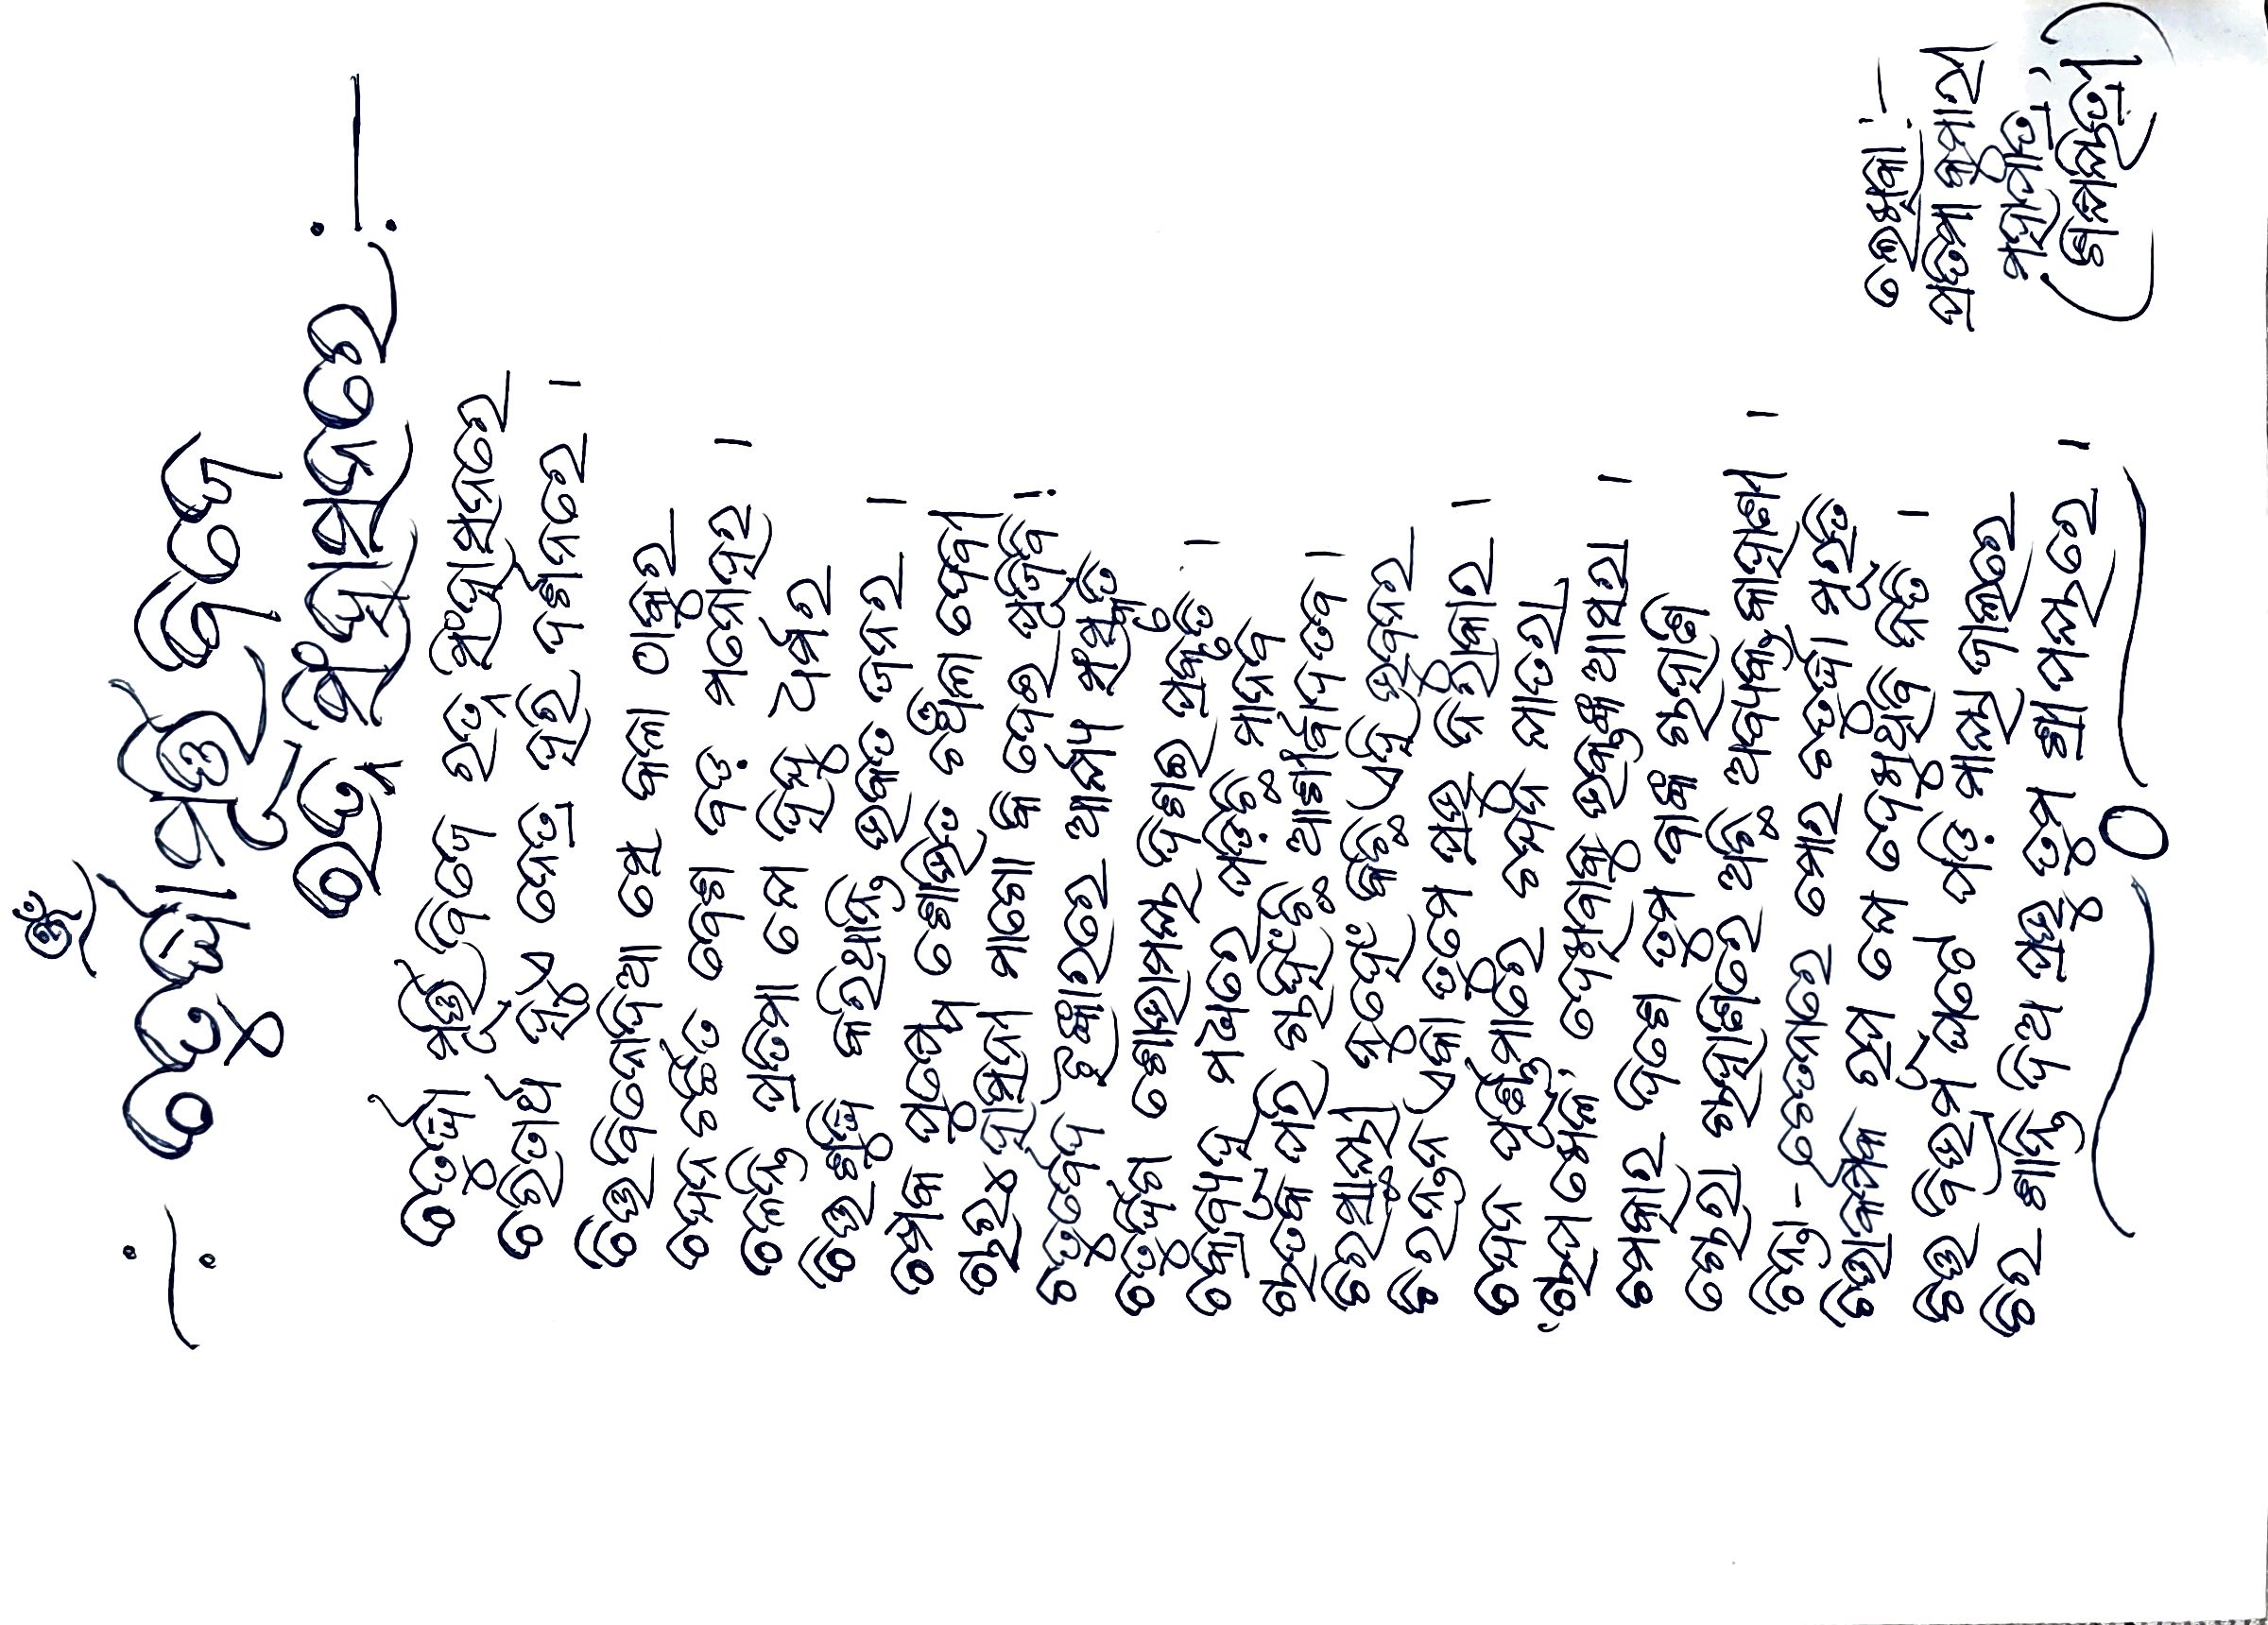 ଓଁ
-: ଚତୁର୍ଦ୍ଧା ମୂର୍ତ୍ତି ବିଜେ
ରତ୍ନ ସିଂହାସନରେ :-
ଚତୁର୍ଦ୍ଧା ମୂର୍ତ୍ତି ବିଜେ ରତ୍ନ ସିଂହାସନରେ
ଚରିତାର୍ଥ ହୁଏ ନେତ୍ର ହରି ଦର୍ଶନରେ ।
ଚିତ୍ତ ବିନୋଦିଆ ସେ କଳା ଠାକୁର
ଚନ୍ଦନ ଚର୍ଚ୍ଚିତ ବେଶ ବଡ଼ ମନୋହର ।
ଚଳନ୍ତି ପ୍ରତିମା ସେ ହିନ୍ଦୁ ଧର୍ମର
ଚିତ୍ତ ଶୁଦ୍ଧି କରିଥାନ୍ତି ଭକତ ଜନର ।
ଚମ୍ପକ ପୁଷ୍ପେ ଶୋଭିତ ଚଞ୍ଚଳା ଦେବୀ
ଚାରୁହାସିନୀ ମାଗୋ କି ଦେଇ ପୂଜିବି !
ଚତୁର୍ବେଦ ଝଙ୍କାରରେ ଆର୍ଯ୍ୟ ସଂସ୍କୃତି
ଚତୁର୍ଦ୍ଦିଗ ଶୋଭାମୟ ଦିଶଇ ପ୍ରକୃତି ।
ଚକ୍ରବ୍ୟୁହ ମଧ୍ୟରେ ପଡ଼ିଛି ମାନବ
ଚାତକ ପରି ଚାହିଁଛି ଆଶୀର୍ବାଦ ତବ ।
ଚିରସ୍ଥାୟୀ ନୁହେଁ କିଛି ଏହି ଭୁବନର
ଚିରନ୍ତନ ଏକା ତୁମେ ପ୍ରଭୁ ନିରାକାର ।
ଚନ୍ଦନ ପୂର୍ଣ୍ଣିମାରେ ଚନ୍ଦନ ଯାତରା
'ଚାପ ଖେଳ' ଦେଖିବାକୁ ଭକ୍ତଙ୍କ ଆସରା ।
ଚମତ୍କାର ଦିଶେ ତୁମ ବାଙ୍କ ଚାହାଣି
ଚୋରା ଚାହାଣିରେ ଅଛି ଅବ୍ୟକ୍ତ କାହାଣୀ ।
ଚିନ୍ତା - ଚେତନାରେ ମୋର ଚତୁର୍ଦ୍ଧା ମୂରତି
ଚିତ୍ତାକର୍ଷକ ରୂପ ସେ ଦେଖୁଥିବି ନିତି ।
ଚିତ୍ତ ବିଭ୍ରମ ଘଟେ ପଡ଼ି ମାୟା ଜାଲରେ
ଚିର ଶାନ୍ତି ଦିଅ ପ୍ରଭୁ ତୁମ ଶ୍ରୀ ପୟରେ ।
ଲେଖିକା :-
ପ୍ରତିମା କୁମାରୀ
ମହାପାତ୍ର,
(ଶିକ୍ଷୟିତ୍ରୀ)